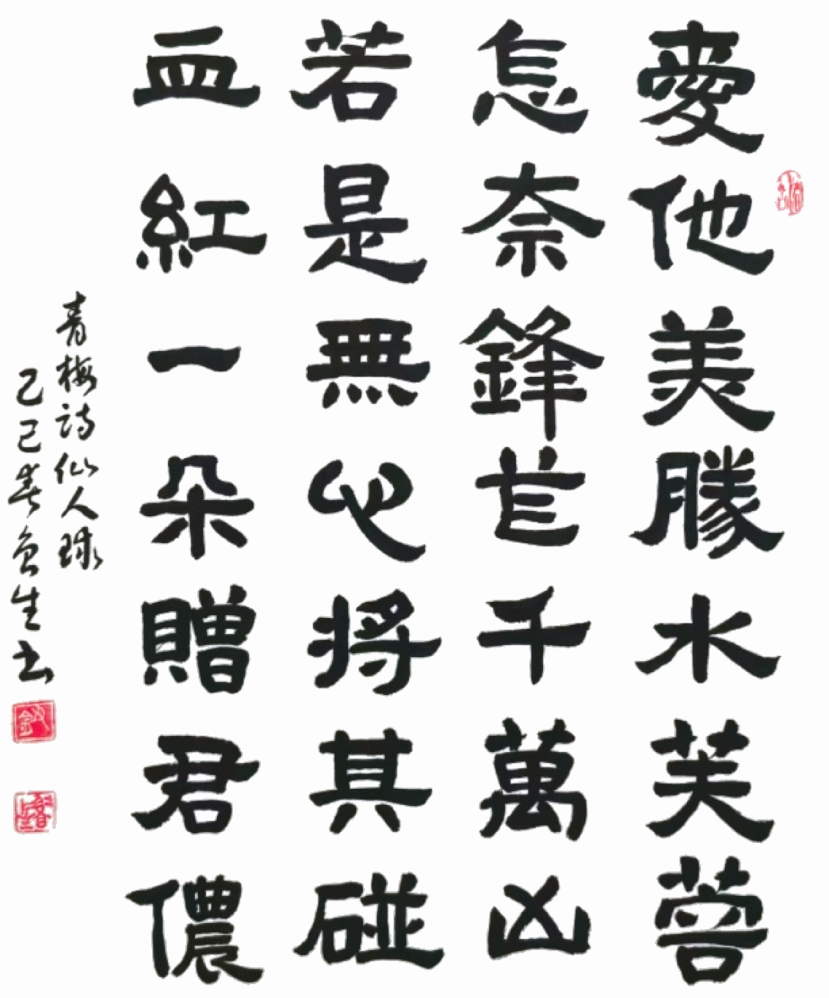 愛他美勝水芙蓉
怎奈鋒芒千萬凶
若是無心將其碰
血紅一朵贈君儂
青梅詩仙人球
己巳春生書